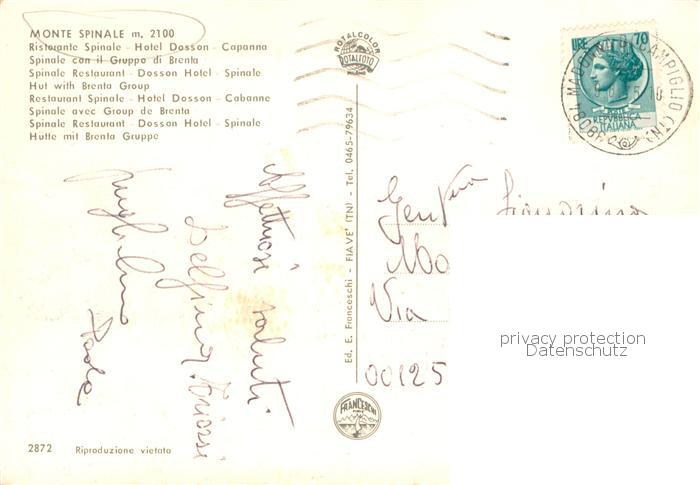 MONTE SPINALE m. 2100
Ristorante Spinale - Hotel Dosson - Capanna
Spinale con il Gruppo di Brenta
Spinale Restaurant - Dosson Hotel - Spinale
Hut with Brenta Group
Restaurant Spinale - Hotel Dosson - Cabanne
Spinale avec Group de Brenta
Spinale Restaurant - Dosson Hotel - Spinale
Hutte mit Brenta Gruppe
ROTALCOLOR
ROTALFOTO
MILANO
LIRE 70
REPVBBLICA
ITALIANA
38081 MADONNA DI CAMPIGLIO (TN)
Affettuosi saluti
Delfina
Guglielmo
Paola
Ed. E. Franceschi - FIAVE' (TN) - Tel. 0465-79634
Gent
Via
00125
privacy protection
Datenschutz
FRANCESCHI
2872 Riproduzione vietata